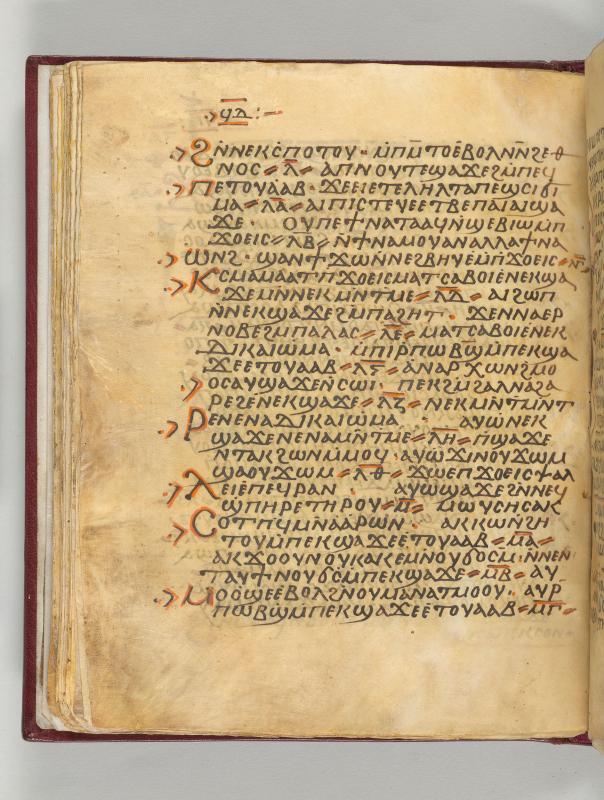 ϥⲇ̅ :-
ϩⲛ̄ⲛⲉⲕⲥⲡⲟⲧⲟⲩ · ⲙ̄ⲡⲙ̄ⲧⲟⲉ̄ⲃⲟⲗⲛ̄ⲛ̄ϩⲉⲑ
ⲛⲟⲥ ⸗ ⲗ̅ ⸗ ⲁⲡⲛⲟⲩⲧⲉϣⲁϫⲉϩⲙ̄ⲡⲉϥ
ⲡⲉⲧⲟⲩⲁⲁⲃ · ϫⲉⲉⲓⲉⲧⲉⲗⲏⲗⲧⲁⲡⲉϣⲥⲓⲃⲓ
ⲙⲁ ⸗ ⲗⲁ̅ ⸗ ⲁⲓⲡⲓⲥⲧⲉⲩⲉⲉⲧⲃⲉⲡⲁⲓⲁⲓϣⲁ
ϫⲉ · ⲟⲩⲡⲉϯⲛⲁⲧⲁⲁϥⲛ̄ϣⲉⲃⲓⲱⲙ̄ⲡ
ϫⲟⲉⲓⲥ ⸗ ⲗⲃ̅ ⸗ ⲛ̄ϯⲛⲁⲙⲟⲩⲁⲛⲁⲗⲗⲁϯⲛⲁ
ⲱⲛϩ · ϣⲁⲛϯϫⲱⲛ̄ⲛⲉϩⲃⲏⲩⲉⲙ̄ⲡϫⲟⲉⲓⲥ
ⲕⲥⲙⲁⲙⲁⲁⲧⲡ̄ϫⲟⲉⲓⲥⲙⲁⲧⲥⲁⲃⲟⲓⲉ̄ⲛⲉⲕϣⲁ
ϫⲉⲙⲛ̄ⲛⲉⲕⲙⲛ̄ⲧⲙⲉ ⸗ ⲗⲇ̅ ⸗ ⲁⲓϩⲱⲡ
ⲛ̄ⲛⲉⲕϣⲁϫⲉϩⲙ̄ⲡⲁϩⲏⲧ · ϫⲉⲛⲛⲁⲉⲣ
ⲛⲟⲃⲉϩⲙ̄ⲡⲁⲗⲁⲥ ⸗ ⲗⲉ̅ ⸗ ⲙⲁⲧⲥⲁⲃⲟⲓⲉⲛⲉⲕ
ⲇⲓⲕⲁⲓⲱⲙⲁ · ⲙ̄ⲡⲓⲣ̄ⲡⲱⲃϣ̄ⲙ̄ⲡⲉⲕϣⲁ
ϫⲉⲉⲧⲟⲩⲁⲁⲃ ⸗ ⲗⲋ̅ ⸗ ⲁⲛⲁⲣⲭⲱⲛϩⲙⲟ
ⲟⲥⲁⲩϣⲁϫⲉⲛ̄ⲥⲱⲓ · ⲡⲉⲕϩⲙ̄ϩⲁⲗⲛⲁϩⲁ
ⲣⲉϩⲉ̄ⲛⲉⲕϣⲁϫⲉ ⸗ ⲗⲍ̅ ⸗ ⲛⲉⲕⲙⲛ̄ⲧⲙⲛ̄ⲧ
ⲣⲉⲛⲉⲛⲁⲇⲓⲕⲁⲓⲱⲙⲁ · ⲁⲩⲱⲛⲉⲕ
ϣⲁϫⲉⲛⲉⲛⲁⲙⲛ̄ⲧⲙⲉ ⸗ ⲗⲏ̅ ⸗ ⲡ̄ϣⲁϫⲉ
ⲛ̄ⲧⲁⲕϩⲱⲛⲙ̄ⲙⲟϥ · ⲁⲩⲱϫⲓⲛⲟⲩϫⲱⲙ
ϣⲁⲟⲩϫⲱⲙ ⸗ ⲗⲑ̅ ⸗ ϫⲱⲉⲡϫⲟⲉⲓⲥϯⲁⲗ
ⲗⲉⲓⲉ̄ⲡⲉϥⲣⲁⲛ · ⲁⲩⲱϣⲁϫⲉϩⲛ̄ⲛⲉϥ
ϣⲡⲏⲣⲉⲧⲏⲣⲟⲩ ⸗ ⲙ̅ ⸗ ⲙⲱⲩⲥⲏⲥⲁⲕ
ⲥⲟⲧⲡϥⲙⲛ̄ⲁⲁⲣⲱⲛ · ⲁⲕⲕⲱⲛ̄ϩⲏ
ⲧⲟⲩⲙ̄ⲡⲉⲕϣⲁϫⲉⲉ̄ⲧⲟⲩⲁⲁⲃ ⸗ ⲙⲁ̅ ⸗
ⲁⲕϫⲟⲟⲩⲛⲟⲩⲕⲁⲕⲉⲙⲛⲟⲩϭⲟⲥⲙ · ⲛ̄ⲛⲉⲛ
ⲧⲁⲩϯⲛⲟⲩϭⲥⲙ̄ⲡⲉⲕϣⲁϫⲉ ⸗ ⲙⲃ̅ ⸗ ⲁⲩ
ⲙⲟⲟϣⲉⲉ̄ⲃⲟⲗϩⲛ̄ⲟⲩⲙⲁⲛⲁⲧⲙⲟⲟⲩ · ⲁⲩⲣ̄
ⲡⲱⲃϣ̄ⲙ̄ⲡⲉⲕϣⲁϫⲉⲉ̄ⲧⲟⲩⲁⲁⲃ ⸗ ⲙⲅ̅ ⸗